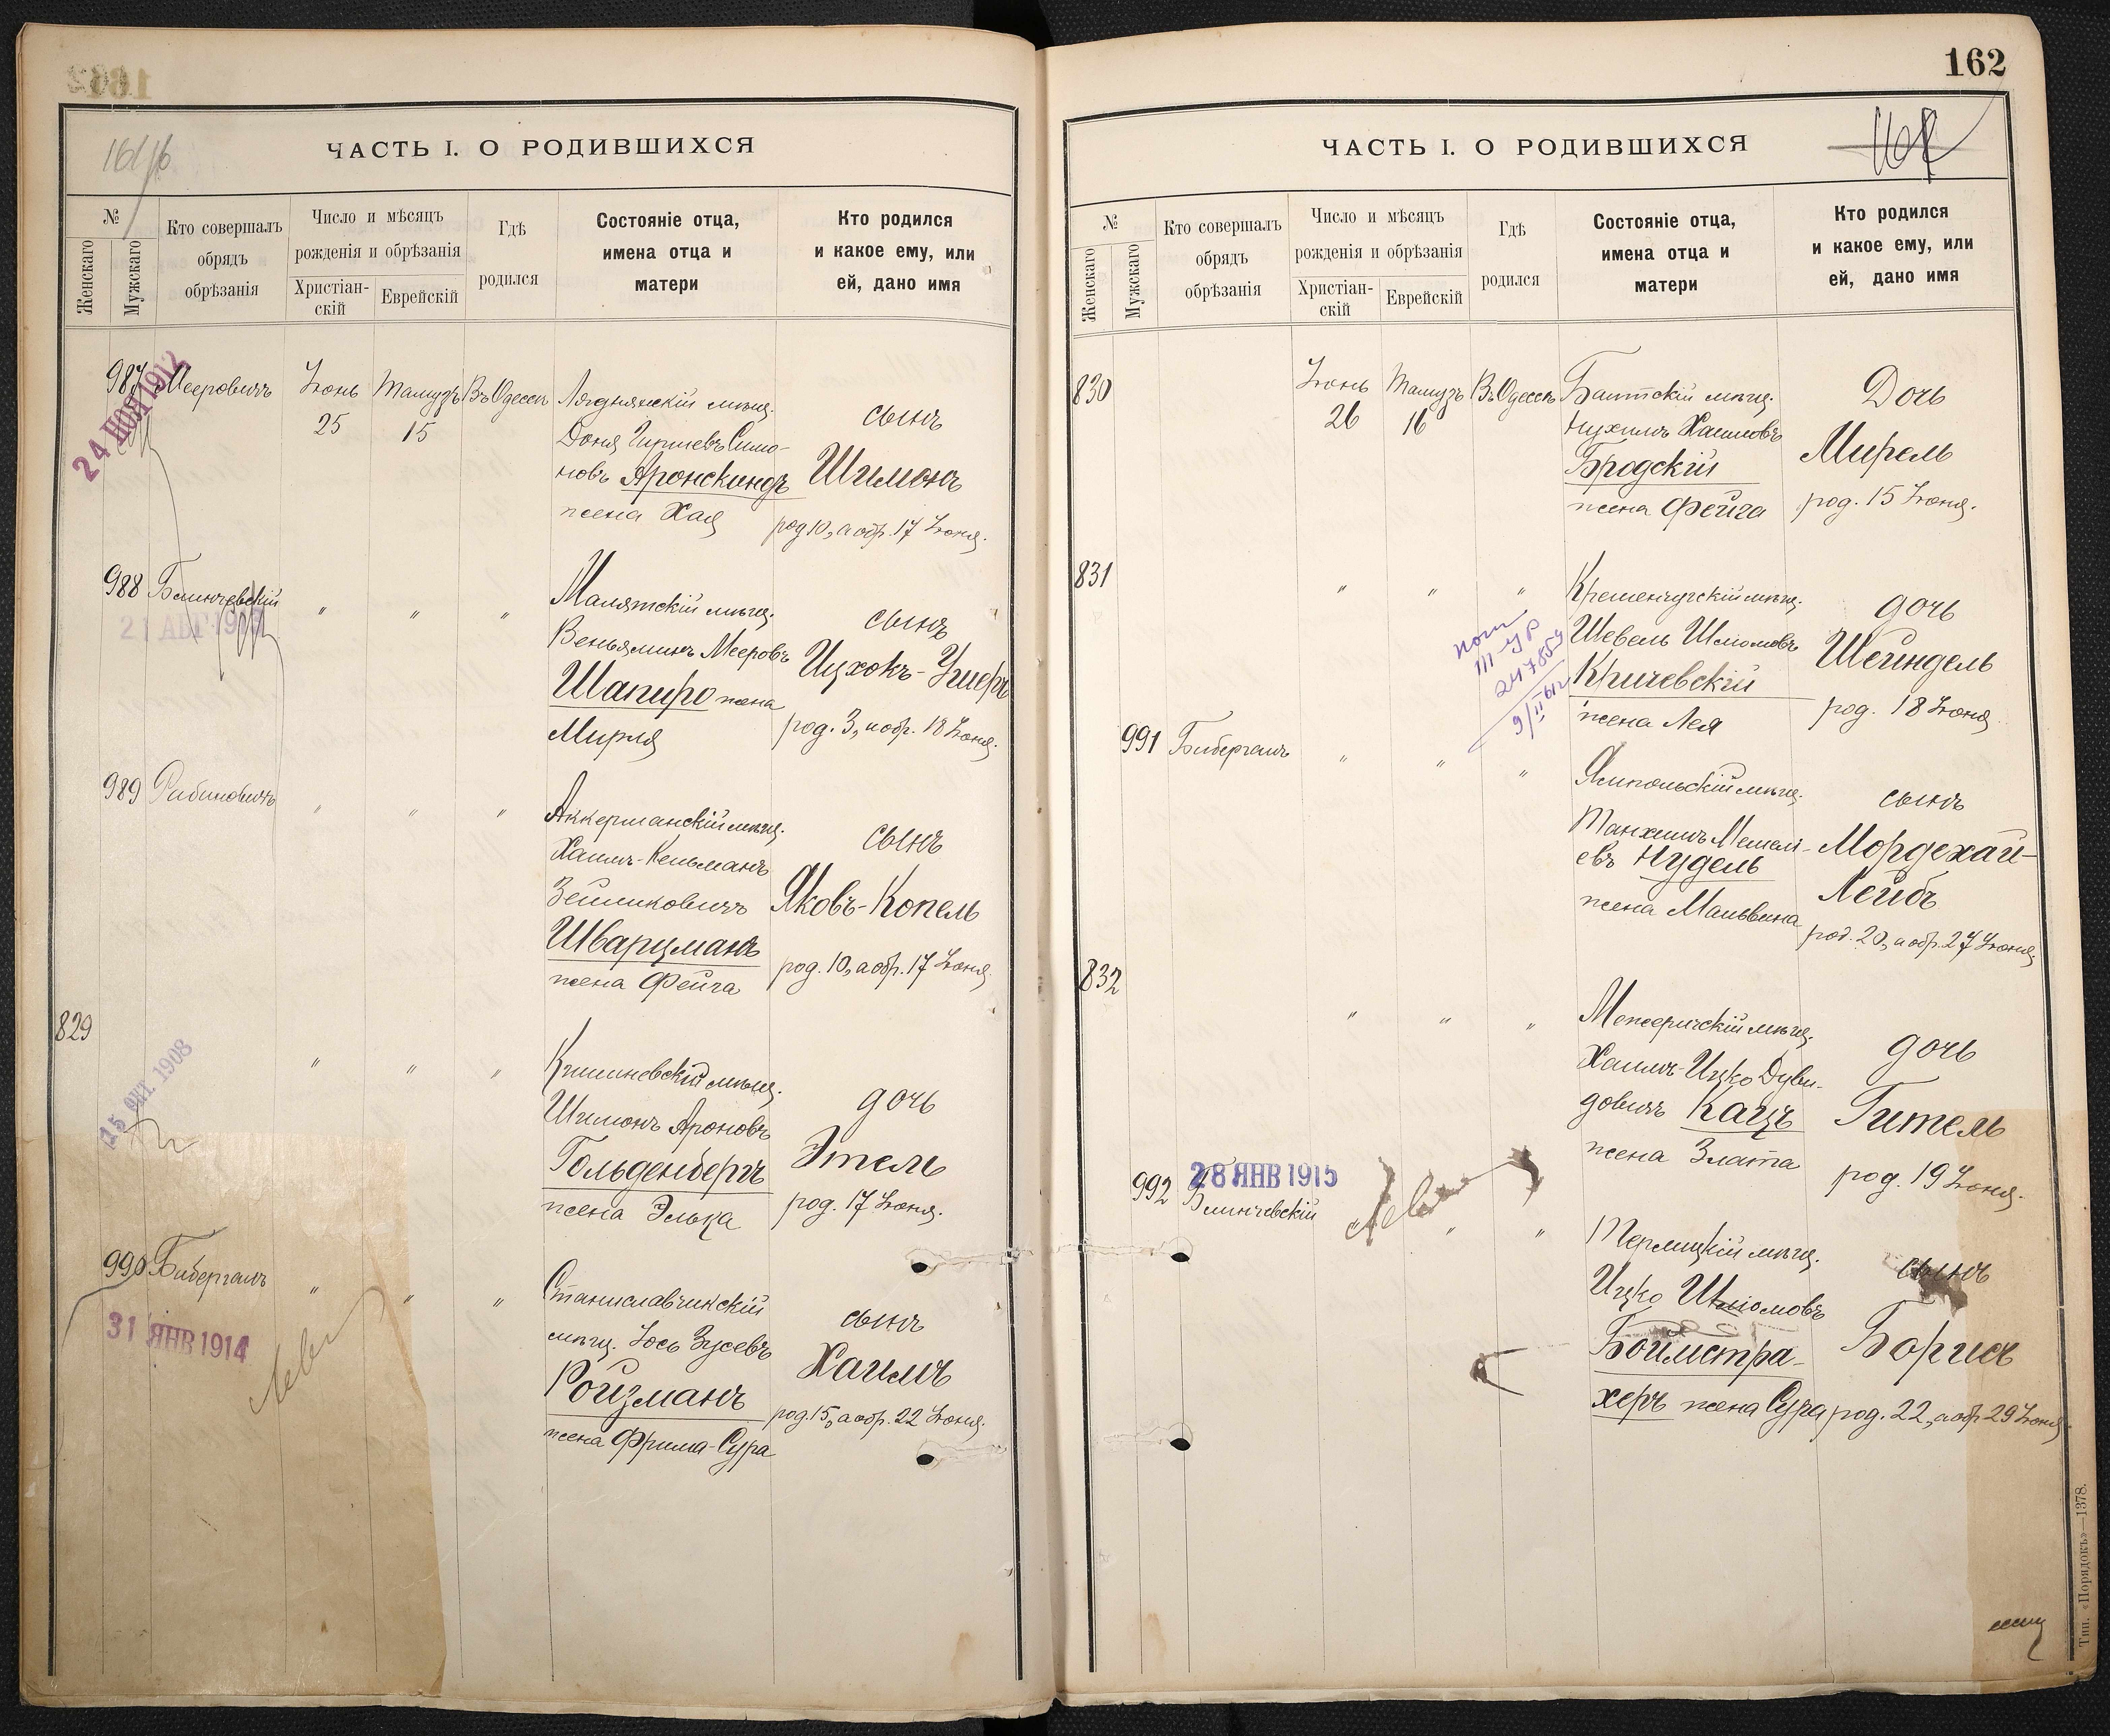 ЧАСТЬ I. О РОДИВШИХСЯ
№
Женскаго
Мужскаго
Кто совершалъ
обрядъ
обрѣзанія
Число и мѣсяцъ
рожденія и обрѣзанія
Христіан-
скій
Еврейскій
Гдѣ
родился
Состояніе отца,
имена отца и
матери
Кто родился
и какое ему, или
ей, дано имя
987
24 НОЯ 1912
Мееровичъ
Іюнь
25
Тамузъ
15
Въ Одессѣ
мѣщ.
Доня Гиршевъ Симо-
новъ Аронскиндъ
жена Хая
сынъ
Шимонъ
род 10, а обр. 17 Іюня.
988
Блинчевскій
21 АВГ
"
"
"
Малятскій мѣщ.
Веньяминъ Мееровъ
Шапиро жена
Мирля
сынъ
Ицхокъ-Ушеръ
род. 3, и обр. 18 Іюня.
989
Рабиновичъ
"
"
"
Аккерманскій мѣщ.
Хаимъ-Кельманъ
Зейликовичъ
Шварцманъ
жена Фейга
сынъ
Яковъ-Копель
род. 10, а обр. 17 Іюня.
829
15 ОКТ. 1908
"
"
"
Кишиневскій мѣщ.
Шимонъ Ароновъ
Гольденбергъ
жена Элька
дочь
Этель
род. 17 Іюня.
990
Бибергалъ
31 ЯНВ 1914
"
"
"
Станиславчикскій
мѣщ. Іось Зусевъ
Ройзманъ
жена Фрима-Сура
сынъ
Хаимъ
род. 15, а обр. 22 Іюня.
162
ЧАСТЬ I. О РОДИВШИХСЯ
№
Женскаго
Мужскаго
Кто совершалъ
обрядъ
обрѣзанія
Число и мѣсяцъ
рожденія и обрѣзанія
Христіан-
скій
Еврейскій
Гдѣ
родился
Состояніе отца,
имена отца и
матери
Кто родился
и какое ему, или
ей, дано имя
830
Іюнь
26
Тамузъ
16
Въ Одессѣ
Балтскій мѣщ.
Нухимъ Хаимовъ
Бродскій
жена Фейга
Дочь
Мирель
род. 15 Іюня.
831
"
"
"
Кременчугскій мѣщ.
Шевель Шлиомовъ
Кричевскій
жена Лея
дочь
Шейндель
род. 18 Іюня
991
Бибергалъ
"
"
"
Ямпольскій мѣщ.
Танхимъ Мешелі-
евъ Нудель
жена Мальвина
сынъ
Мордехай-
Лейбъ
род. 20, и обр. 27 Іюня
832
"
"
"
Межеричскій мѣщ.
Хаимъ-Ицко Дуви-
довичъ Кацъ
жена Злата
дочь
Гитель
род. 19 Іюня.
992
28 ЯНВ 1915
Блинчевскій
"
"
Терлицкій мѣщ.
Ицко Шліомовъ
Боймстра-
херъ жена Сура
сынъ
Борисъ
род. 22, а обр. 29 Іюня
Тип. «Порядокъ»—1378.